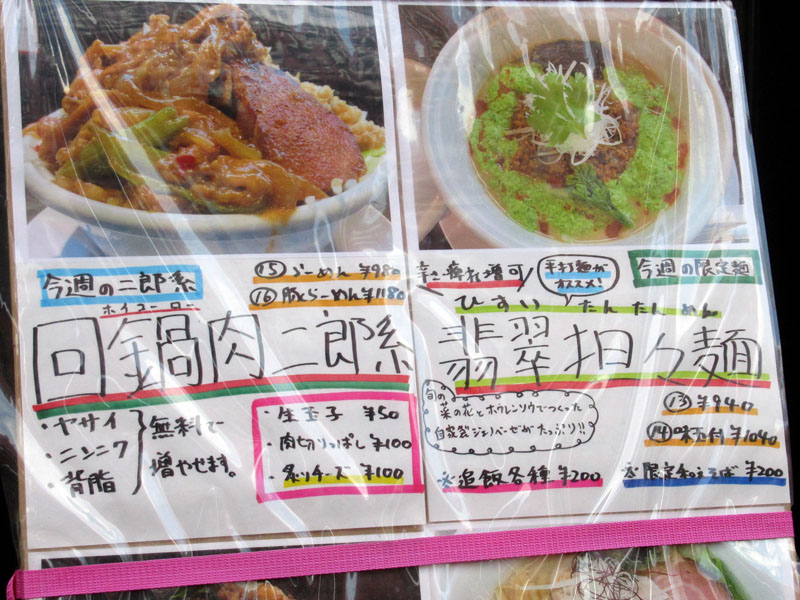 今週の二郎系
⑮らーめん ¥980
⑯豚らーめん¥1180
ホイコーロー
回鍋肉二郎系
・ヤサイ
・ニンニク
・背脂
無料で
増やせます。
・生玉子 ¥50
・肉切りっぱし ¥100
・炙りチーズ ¥100
辛さ・痺れ増可
平打麺が
オススメ!
今週の限定麺
ひすい たんたんめん
翡翠担々麺
旬の
菜の花とホウレンソウでつくった
自家製ジェノベーゼがたっぷり!!
⑬ ¥940
⑭味玉付 ¥1040
※追飯各種 ¥200
※限定和えそば ¥200